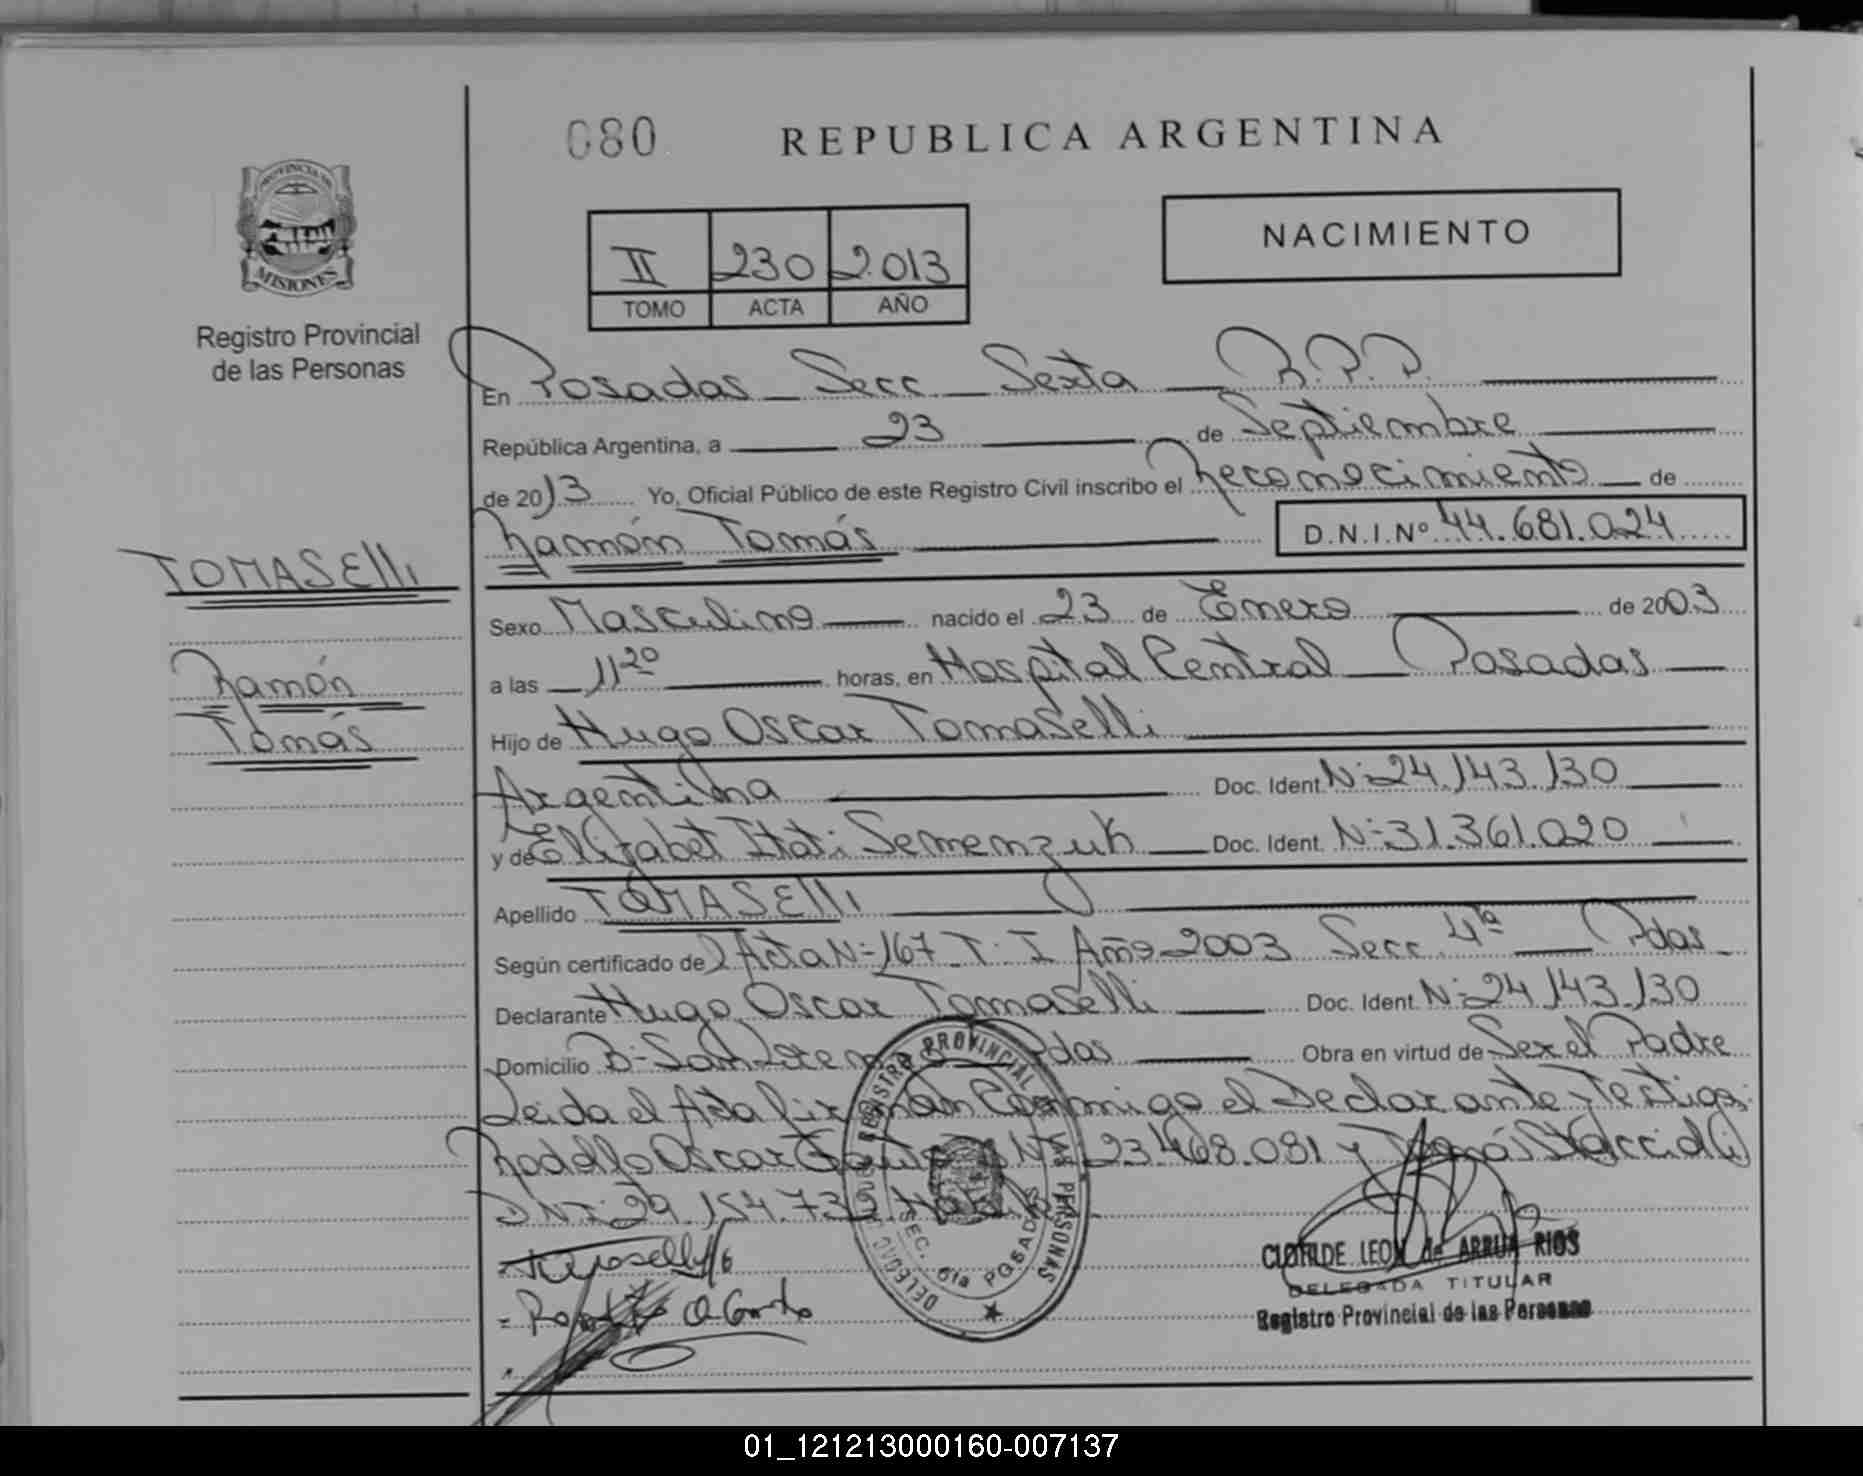 080 REPUBLICA ARGENTINA
PROVINCIA DE
MISIONES
Registro Provincial
de las Personas
NACIMIENTO
II 230 2013
TOMO ACTA AÑO
En Posadas Secc Sexta R.P.P.
República Argentina, a 23 de Septiembre
de 2013 Yo, Oficial Público de este Registro Civil inscribo el Reconocimiento de
Ramón Tomás D.N.I.Nº 44.681.024
TOMASElli
Ramón
Tomás
Sexo Masculino nacido el 23 de Enero de 2003
a las 11 20 horas, en Hospital Central Posadas
Hijo de Hugo Oscar Tomaselli
Argentina Doc. Ident. Nº 24.143.130
y de Elizabet Itati Semenzuk Doc. Ident. Nº 31.361.020
Apellido TOMASElli
Según certificado de Acta Nº 167 T: I Año 2003 Secc. 4ª Pdas
Declarante Hugo Oscar Tomaselli Doc. Ident. Nº 24.143.130
Domicilio Bº San Pdas Obra en virtud de Ser el Padre
Leida el Acta firman Conmigo el Declarante y Testigos:
Rodolfo Oscar 23.468.081 y Tomás
DNI: 29.154.732
DELEGAC REGISTRO PROVINCIAL DE LAS PERSONAS
SEC. 6ta POSADAS
CLOTILDE LEON de ARRUA RIOS
DELEGADA TITULAR
Registro Provincial de las Personas
01_121213000160-007137